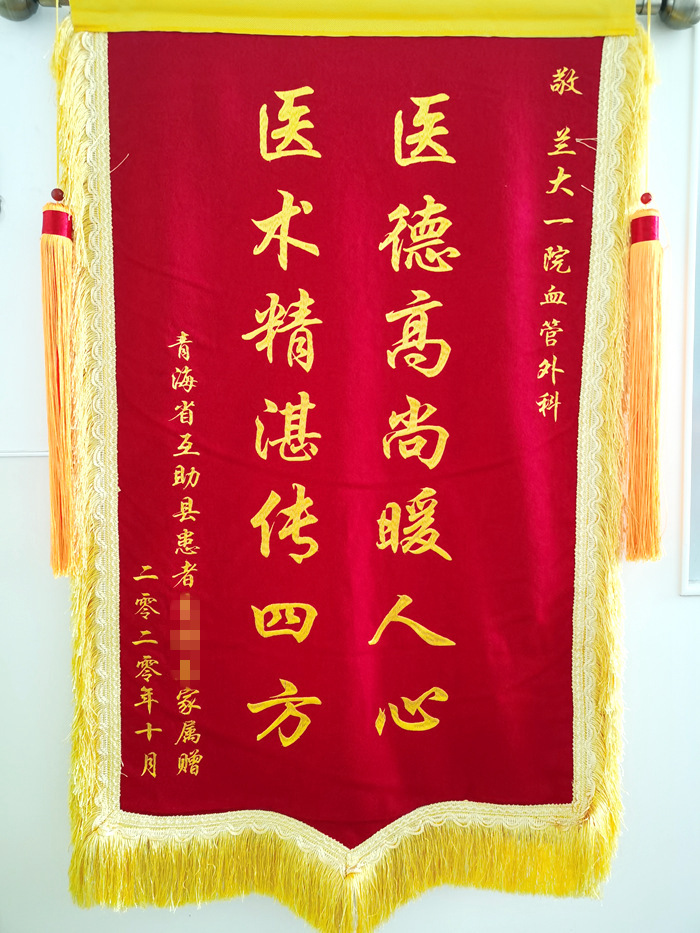 敬 兰大一院血管外科
医德高尚暖人心
医术精湛传四方
青海省互助县患者 家属赠
二零二零年十月